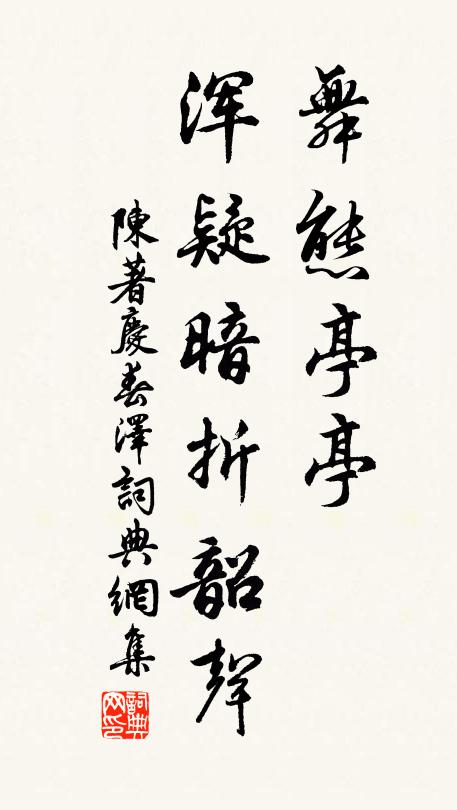 舞態亭亭
渾疑暗折韶聲
陳著慶春澤詞典網集
詞典
网印